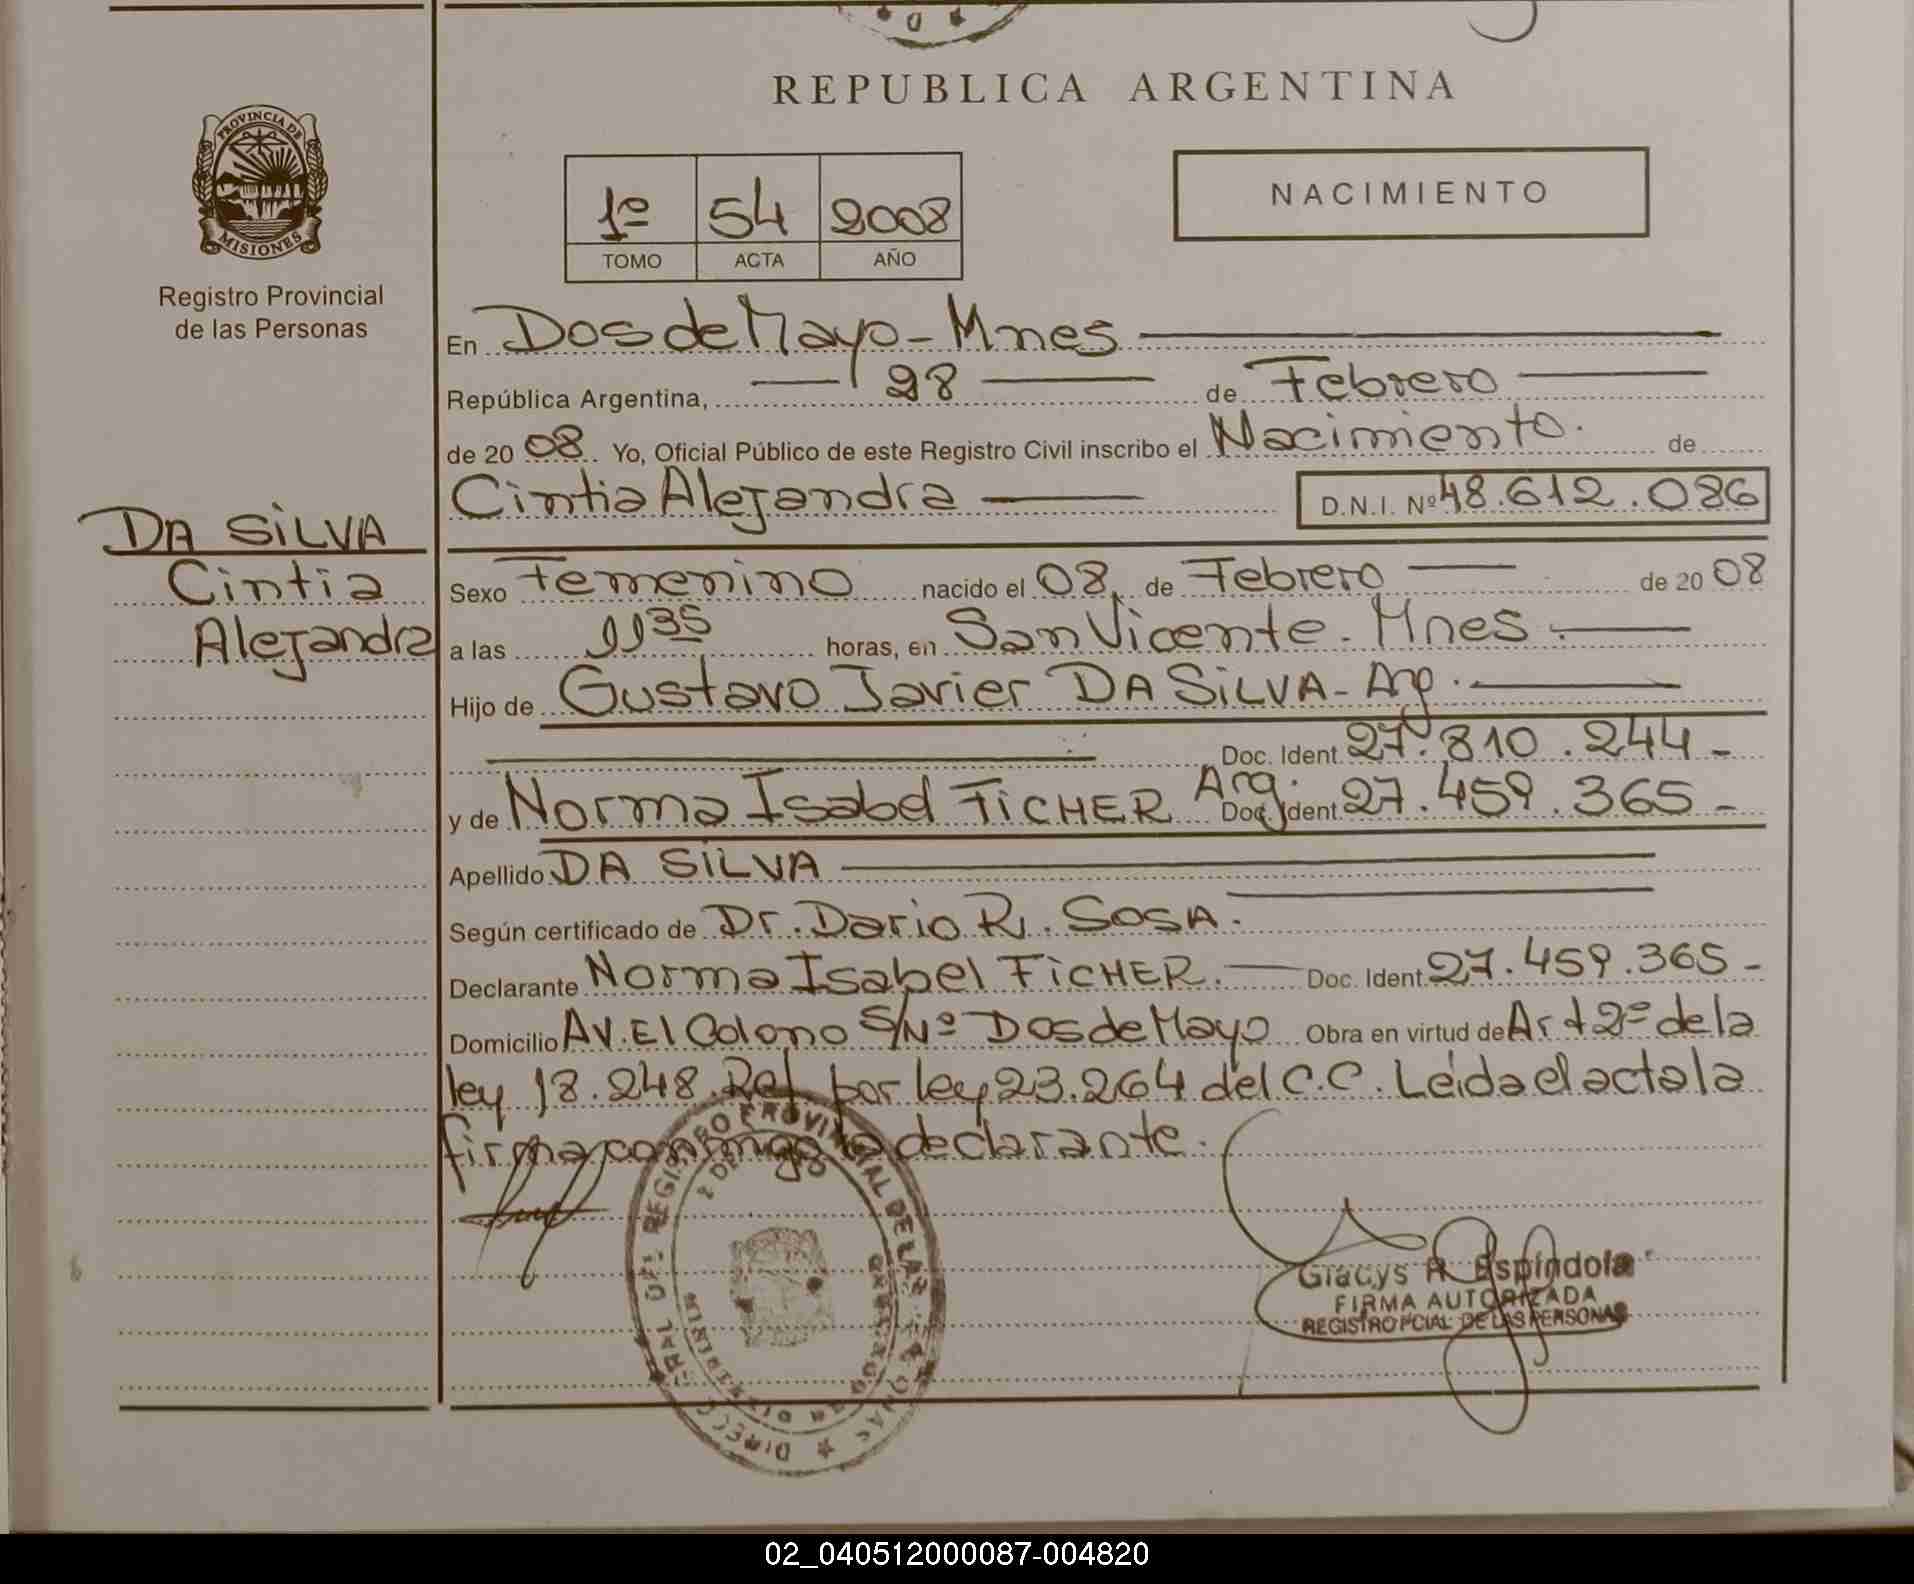 REPUBLICA ARGENTINA
PROVINCIA DE
MISIONES
Registro Provincial
de las Personas
1º 54 2008
TOMO ACTA AÑO
NACIMIENTO
En Dos de Mayo - Mnes
República Argentina, 28 de Febrero
de 20 08 Yo, Oficial Público de este Registro Civil inscribo el Nacimiento. de
Cintia Alejandra D.N.I. Nº 48.612.086
DA SiLVA
Cintia
Alejandra
Sexo Femenino nacido el 08, de Febrero de 20 08
a las 11 35 horas, en San Vicente. Mnes.
Hijo de Gustavo Javier DA SiLVA - Arg.
Doc. Ident. 27.810.244 -
y de Norma Isabel FiCHER Arg. Doc. Ident. 27.459.365 -
Apellido DA SiLVA
Según certificado de Dr. Dario R. SOSA.
Declarante Norma Isabel FiCHER. Doc. Ident. 27.459.365 -
Domicilio AV. El Colono S/Nº Dos de Mayo Obra en virtud de Art 2º de la
ley 18.248. Ref. por ley 23.264 del C.C. Leída el acta la
firma conmigo la declarante.
Gladys R. Espíndola
FIRMA AUTORIZADA
REGISTRO PCIAL DE LAS PERSONAS
02_040512000087-004820